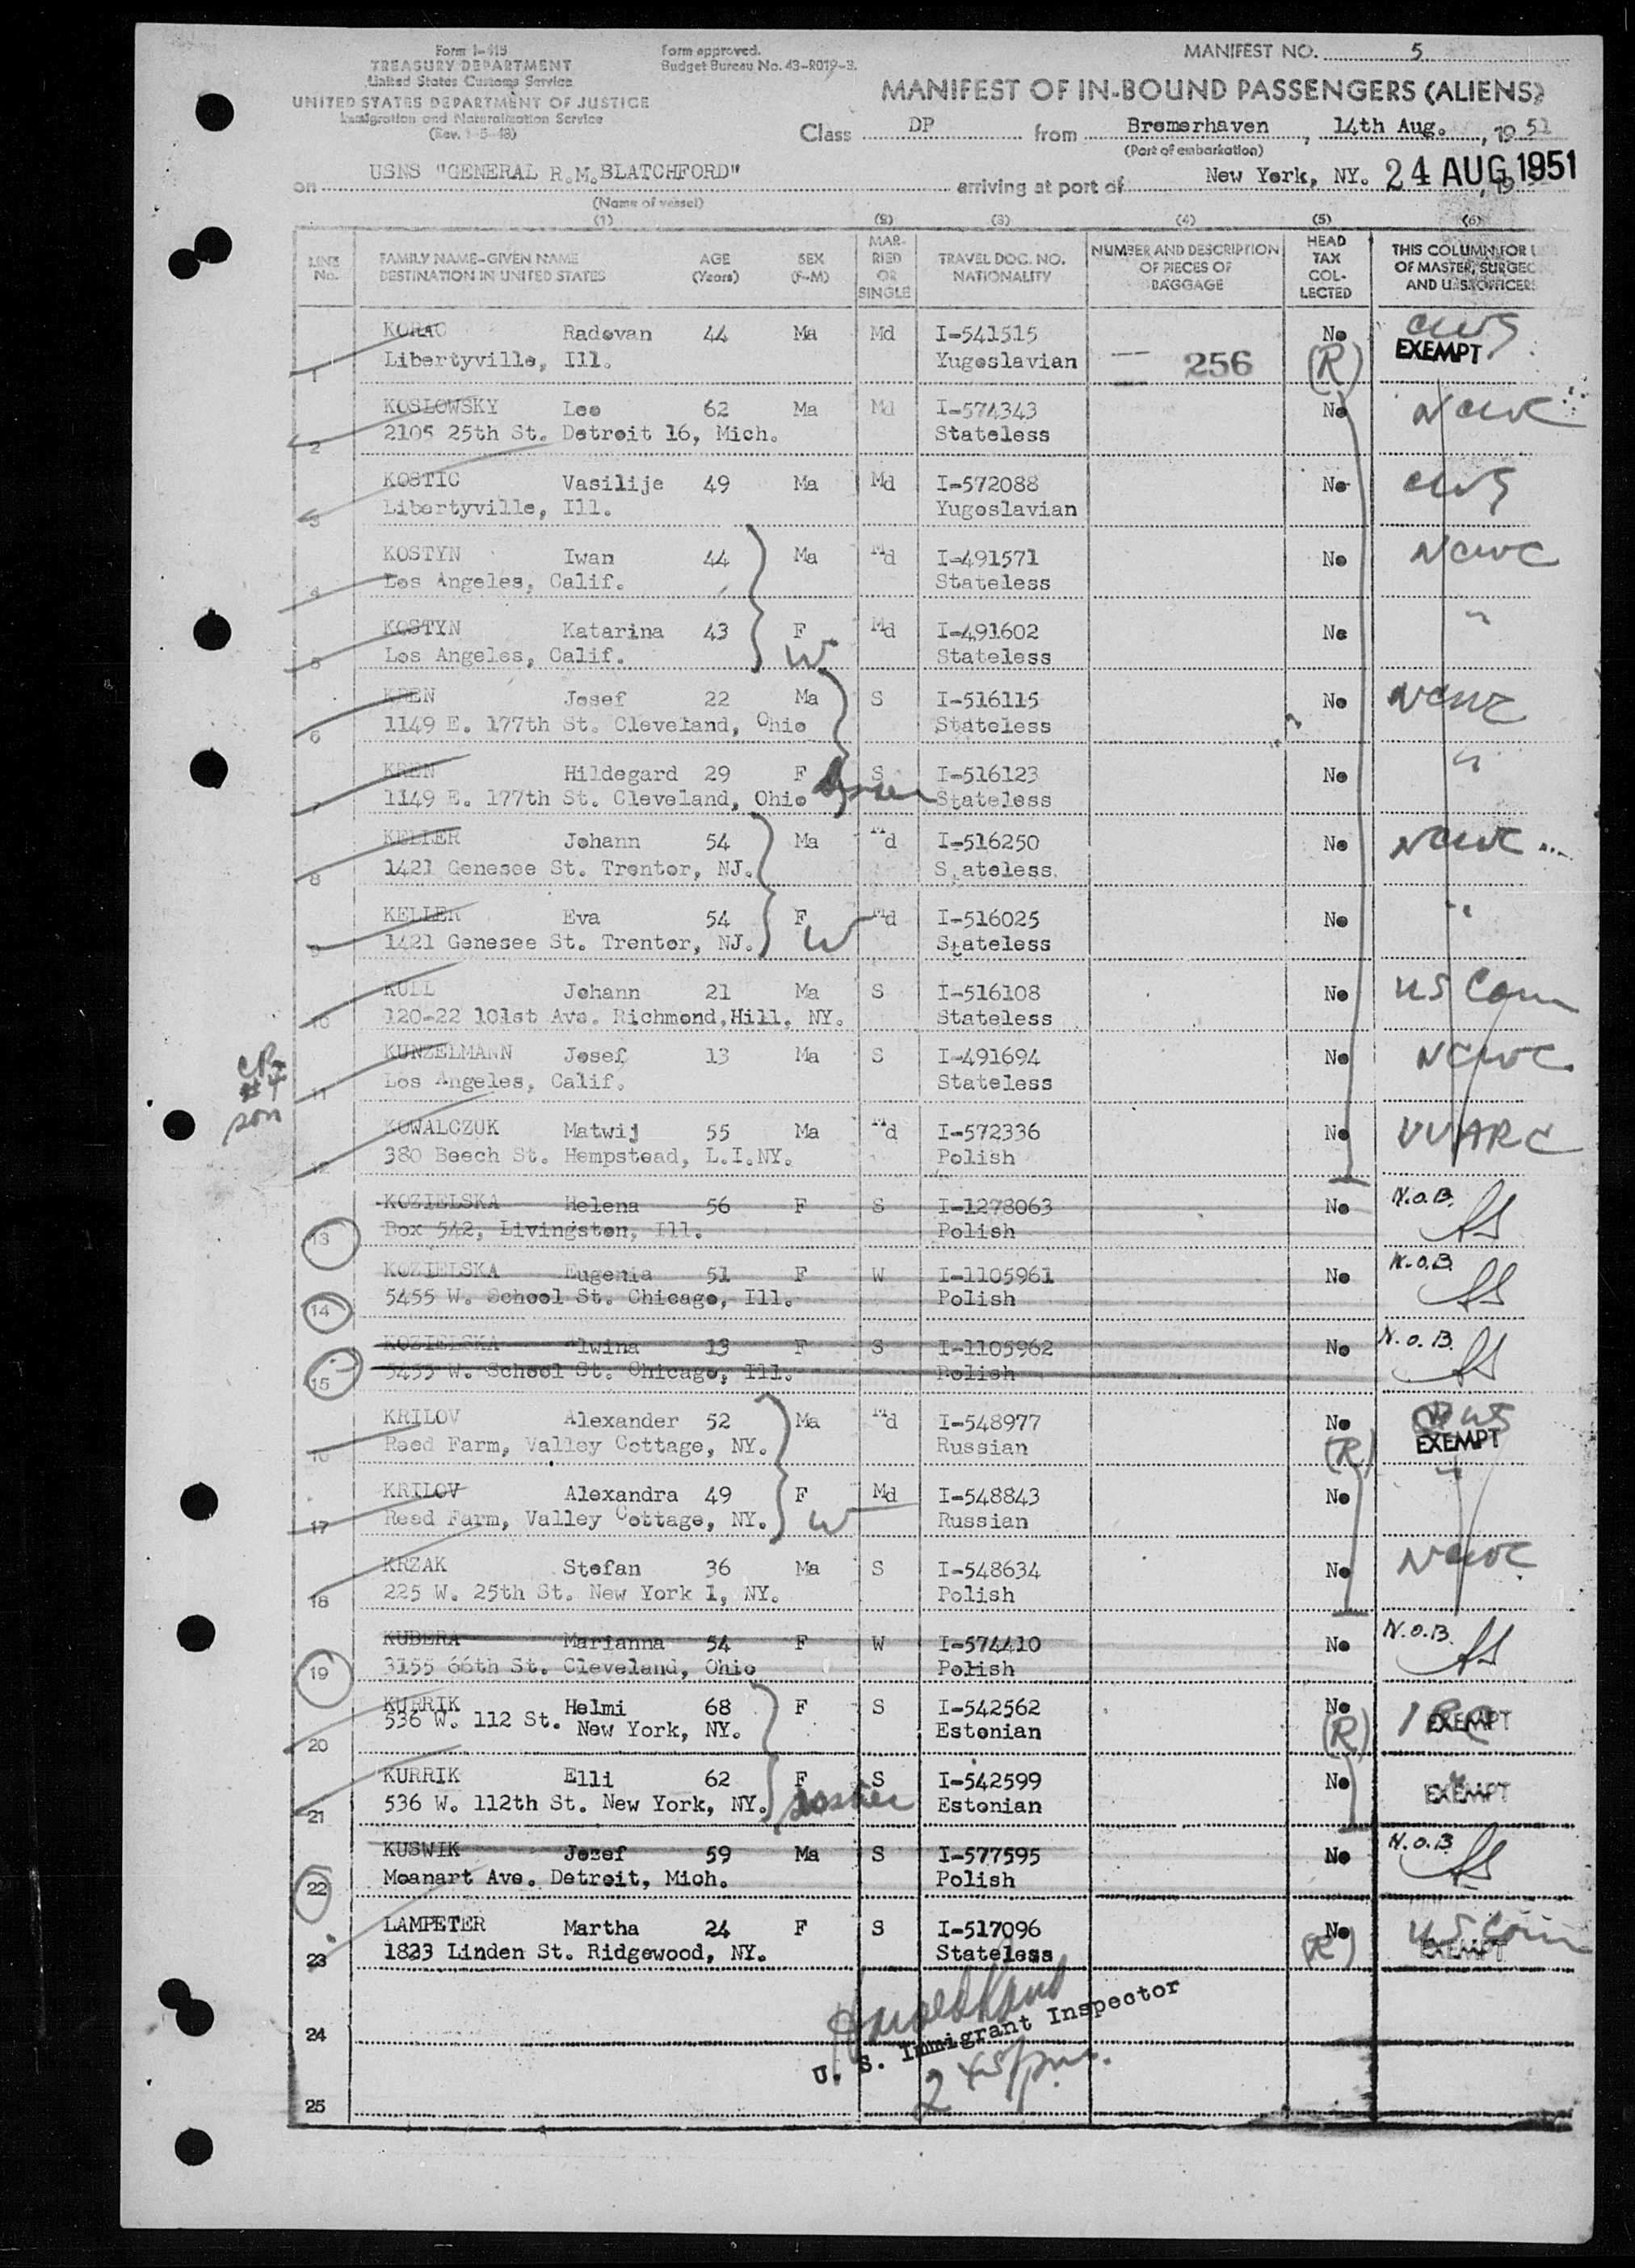 Form I-415
TREASURY DEPARTMENT
United States Customs Service
UNITED STATES DEPARTMENT OF JUSTICE
Immigration and Naturalization Service
(Rev. 1-5-48)
Form approved.
Budget Bureau No. 43-R019-3.
MANIFEST NO. 5
MANIFEST OF IN-BOUND PASSENGERS (ALIENS)
Class DP from Bremerhaven, 14th Aug., 1951
(Port of embarkation)
on USNS "GENERAL R.M. BLATCHFORD" arriving at port of New York, NY. 24 AUG 1951
(Name of vessel)
(1) (2) (3) (4) (5) (6)
LINE No. FAMILY NAME-GIVEN NAME DESTINATION IN UNITED STATES AGE (Years) SEX (F-M) MARRIED OR SINGLE TRAVEL DOC. NO. NATIONALITY NUMBER AND DESCRIPTION OF PIECES OF BAGGAGE HEAD TAX COLLECTED THIS COLUMN FOR U OF MASTER, SURGEO AND U. S. OFFICERS
KORAC Radovan 44 Ma Md I-541515 No CWS
1 Libertyville, Ill. Yugoslavian 256 (R) EXEMPT
KOSLOWSKY Leo 62 Ma Md I-574343 No NCWC
2 2105 25th St. Detroit 16, Mich. Stateless
KOSTIC Vasilije 49 Ma Md I-572088 No CWS
3 Libertyville, Ill. Yugoslavian
KOSTYN Iwan 44 Ma Md I-491571 No NCWC
4 Los Angeles, Calif. Stateless
KOSTYN Katarina 43 F Md I-491602 No "
5 Los Angeles, Calif. W Stateless
KREN Josef 22 Ma S I-516115 No NCWC
6 1149 E. 177th St. Cleveland, Ohio Stateless
KREN Hildegard 29 F S I-516123 No "
7 1149 E. 177th St. Cleveland, Ohio Stateless
KELLER Johann 54 Ma Md I-516250 No NCWC
8 1421 Genesee St. Trentor, NJ. Stateless
KELLER Eva 54 F Md I-516025 No "
9 1421 Genesee St. Trentor, NJ. W Stateless
KULL Johann 21 Ma S I-516108 No US Com
10 120-22 101st Ave. Richmond,Hill, NY. Stateless
KUNZELMANN Josef 13 Ma S I-491694 No NCWC
CR #4 son
11 Los Angeles, Calif. Stateless
KOWALCZUK Matwij 55 Ma Md I-572336 No UUARC
12 380 Beech St. Hempstead, L.I.NY. Polish
KOZIELSKA Helena 56 F S I-1278063 No N.O.B.
13 Box 542, Livingston, Ill. Polish
KOZIELSKA Eugenia 51 F W I-1105961 No N.O.B.
14 5455 W. School St. Chicago, Ill. Polish
KOZIELSKA Alwina 13 F S I-1105962 No N.O.B.
15 5455 W. School St. Chicago, Ill. Polish
KRILOV Alexander 52 Ma Md I-548977 No
16 Reed Farm, Valley Cottage, NY. Russian (R) EXEMPT
KRILOV Alexandra 49 F Md I-548843 No
17 Reed Farm, Valley Cottage, NY. W Russian
KRZAK Stefan 36 Ma S I-548634 No NCWC
18 225 W. 25th St. New York 1, NY. Polish
KUBERA Marianna 54 F W I-574410 No N.O.B.
19 3155 66th St. Cleveland, Ohio Polish
KURRIK Helmi 68 F S I-542562 No
20 536 W. 112 St. New York, NY. Estonian (R) EXEMPT
KURRIK Elli 62 F S I-542599 No
21 536 W. 112th St. New York, NY. sister Estonian EXEMPT
KUSWIK Jozef 59 Ma S I-577595 No N.O.B
22 Moanart Ave. Detroit, Mich. Polish
LAMPETER Martha 24 F S I-517096 No US Com
23 1823 Linden St. Ridgewood, NY. Stateless (R) EXEMPT
24
U. S. Immigrant Inspector
2 45 pm.
25